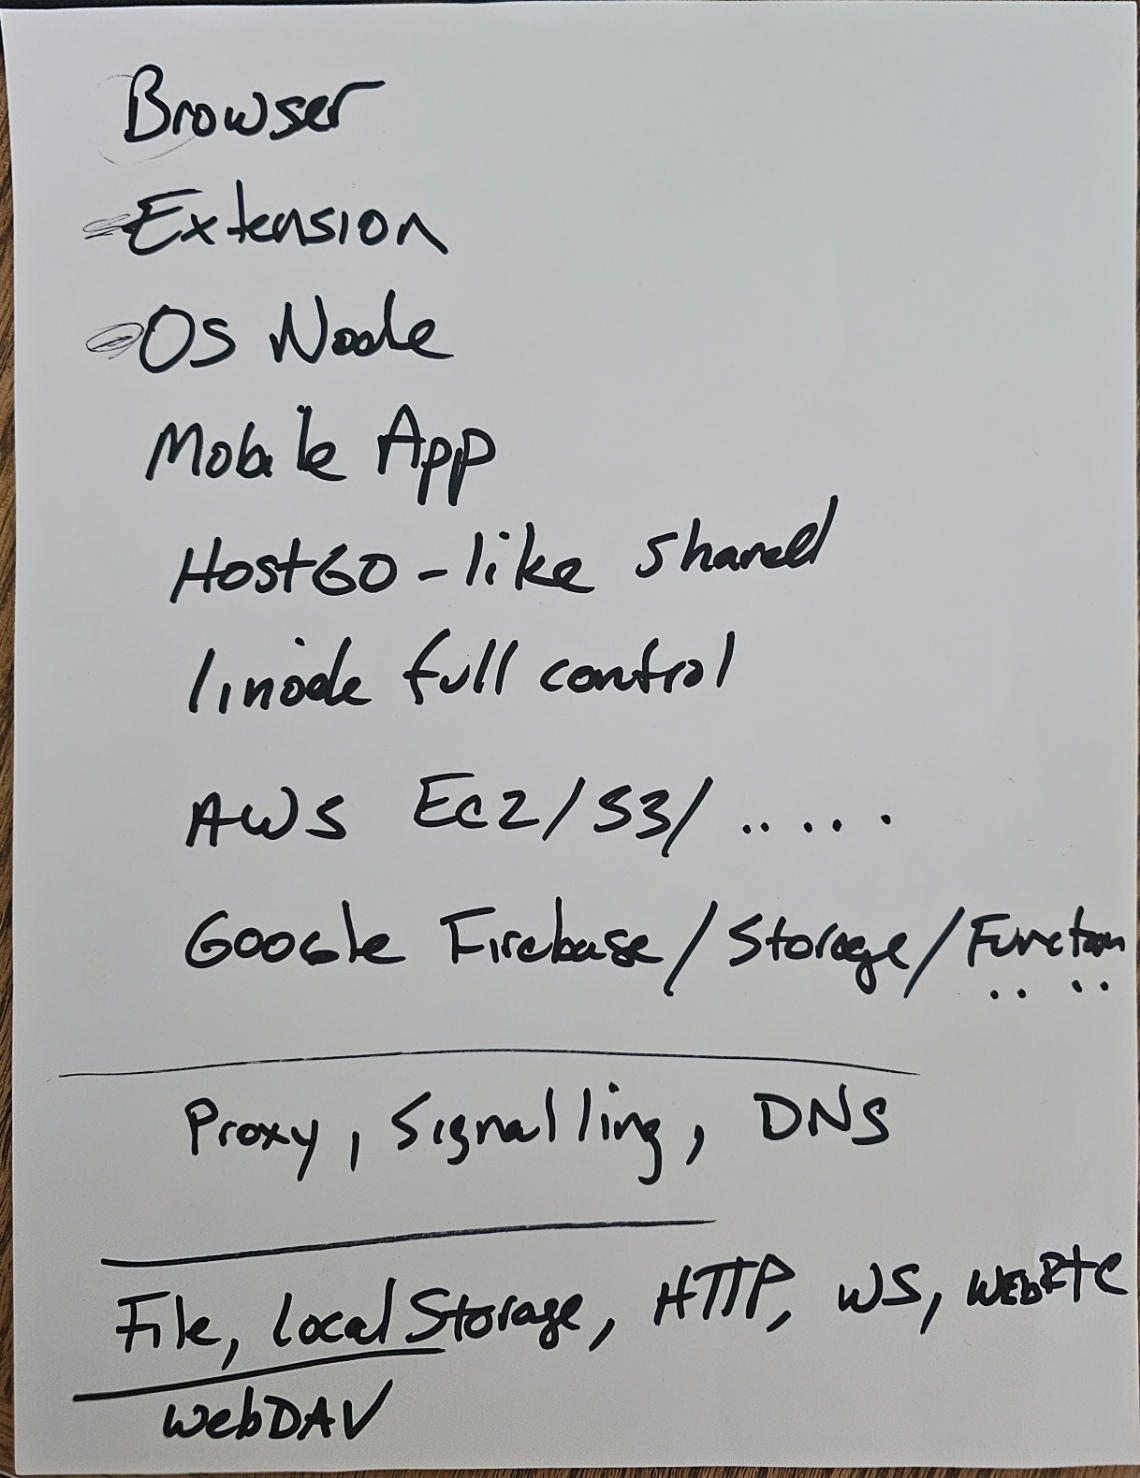 Browser
Extension
OS Node
Mobile App
HostGO-like shared
linode full control
AWS Ec2/S3/ .....
Google Firebase/Storage/Function
.. ..
Proxy, Signalling, DNS
File, localStorage, HTTP, WS, WEBRtC
WebDAV